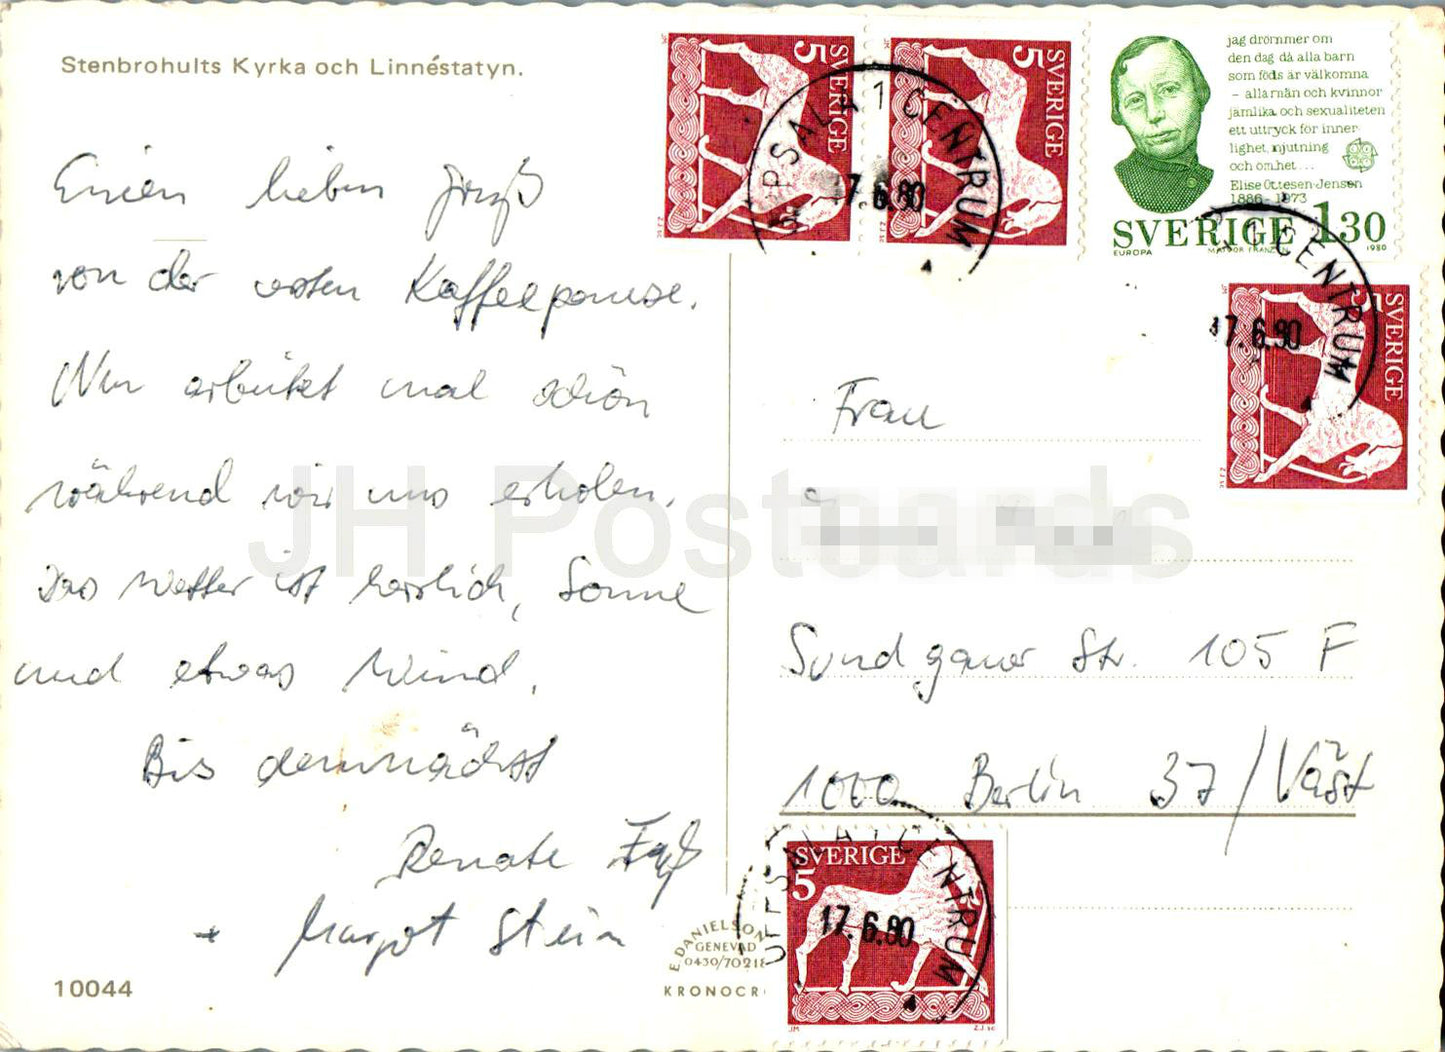 Stenbrohults Kyrka och Linnéstatyn.
Einen lieben Gruß
von der ersten Kaffeepause.
Nun arbeitet mal schön
während wir uns erholen.
Das Wetter ist herrlich, Sonne
und etwas Wind.
Bis demnächst
Renate
+ Margot Stein
10044
E. DANIELSON
GENEVAD
0430/70218
KRONOCR
SVERIGE 5
SVERIGE 5
UPSALA 1 CENTRUM
17.6.80
jag drömmer om
den dag då alla barn
som föds är välkomna
– alla män och kvinnor
jämlika och sexualiteten
ett uttryck för inner
lighet, njutning
och ömhet...
Elise Ottesen-Jensen
1886-1973
SVERIGE 1.30
EUROPA
1980
1 CENTRUM
17.6.80
SVERIGE 5
Frau
Sundgauer Str. 105 F
1000 Berlin 37 / Väst
UPPSALA 1 CENTRUM
SVERIGE
5
17.6.80
JM
Z.J.50
JH Postcards